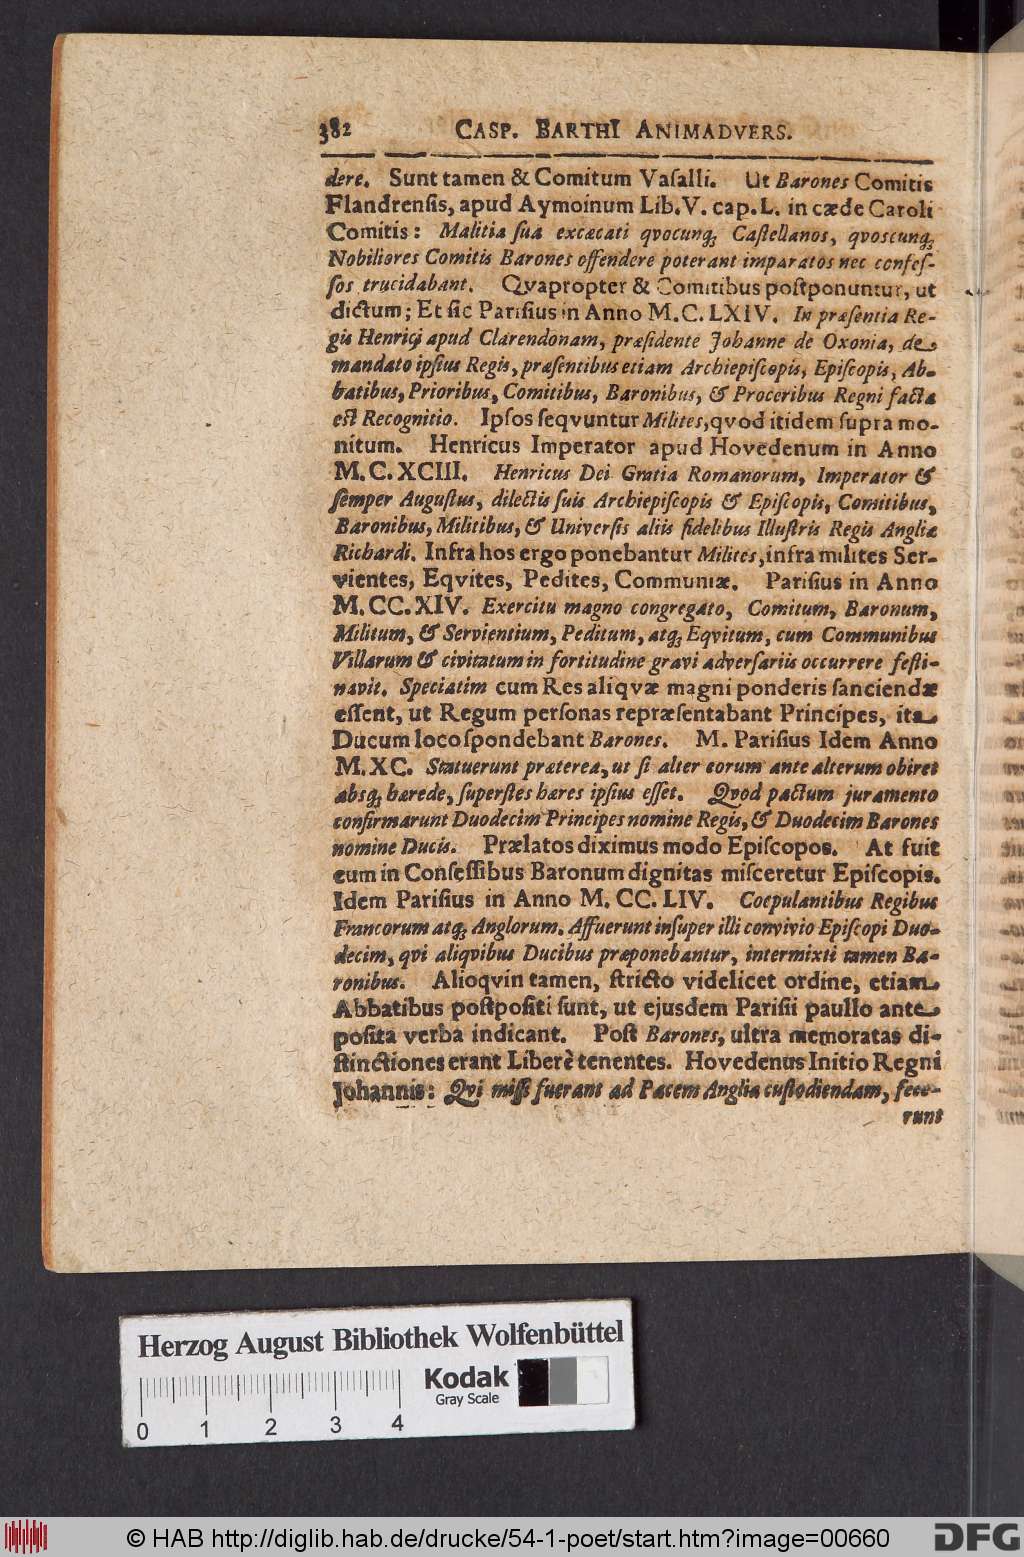 382 CASP. BARTHI ANIMADVERS.
dere. Sunt tamen & Comitum Vaſalli. Ut Barones Comitis
Flandrenſis, apud Aymoinum Lib. V. cap. L. in cæde Caroli
Comitis: Malitia ſua excæcati qvocunq; Caſtellanos, qvoscunq;
Nobiliores Comitis Barones offendere poterant imparatos nec confeſ-
ſos trucidabant. Qvapropter & Comitibus poſtponuntur, ut
dictum; Et ſic Pariſius in Anno M. C. LXIV. In præſentia Re-
gis Henrici apud Clarendonam, præſidente Johanne de Oxonia, de
mandato ipſius Regis, præſentibus etiam Archiepiſcopis, Epiſcopis, Ab-
batibus, Prioribus, Comitibus, Baronibus, & Proceribus Regni facta
eſt Recognitio. Ipſos ſeqvuntur Milites, qvod itidem ſupra mo-
nitum. Henricus Imperator apud Hovedenum in Anno
M. C. XCIII. Henricus Dei Gratia Romanorum, Imperator &
ſemper Auguſtus, dilectis ſuis Archiepiſcopis & Epiſcopis, Comitibus,
Baronibus, Militibus, & Univerſis aliis fidelibus Illuſtris Regis Angliæ
Richardi. Infra hos ergo ponebantur Milites, infra milites Ser-
vientes, Eqvites, Pedites, Communiæ. Pariſius in Anno
M. CC. XIV. Exercitu magno congregato, Comitum, Baronum,
Militum, & Servientium, Peditum, atq; Eqvitum, cum Communibus
Villarum & civitatum in fortitudine gravi adverſariis occurrere feſti-
navit. Speciatim cum Res aliqvæ magni ponderis ſanciendæ
eſſent, ut Regum perſonas repræſentabant Principes, ita
Ducum loco ſpondebant Barones. M. Pariſius Idem Anno
M. XC. Statuerunt præterea, ut ſi alter eorum ante alterum obiret
absq; hærede, ſuperſtes hæres ipſius eſſet. Qvod pactum juramento
confirmarunt Duodecim Principes nomine Regis, & Duodecim Barones
nomine Ducis. Prælatos diximus modo Epiſcopos. At fuit
cum in Conſeſſibus Baronum dignitas miſceretur Epiſcopis.
Idem Pariſius in Anno M. CC. LIV. Coepulantibus Regibus
Francorum atq; Anglorum. Affuerunt inſuper illi convivio Epiſcopi Duo-
decim, qvi aliqvibus Ducibus præponebantur, intermixti tamen Ba-
ronibus. Alioqvin tamen, ſtricto videlicet ordine, etiam
Abbatibus poſtpoſiti ſunt, ut ejusdem Pariſii paullo ante
poſita verba indicant. Poſt Barones, ultra memoratas di-
ſtinctiones erant Liberè tenentes. Hovedenus Initio Regni
Johannis: Qvi miſſi fuerant ad Pacem Angliæ cuſtodiendam, fece-
runt
Herzog August Bibliothek Wolfenbüttel
Kodak
Gray Scale
0 1 2 3 4
© HAB http://diglib.hab.de/drucke/54-1-poet/start.htm?image=00660
DFG